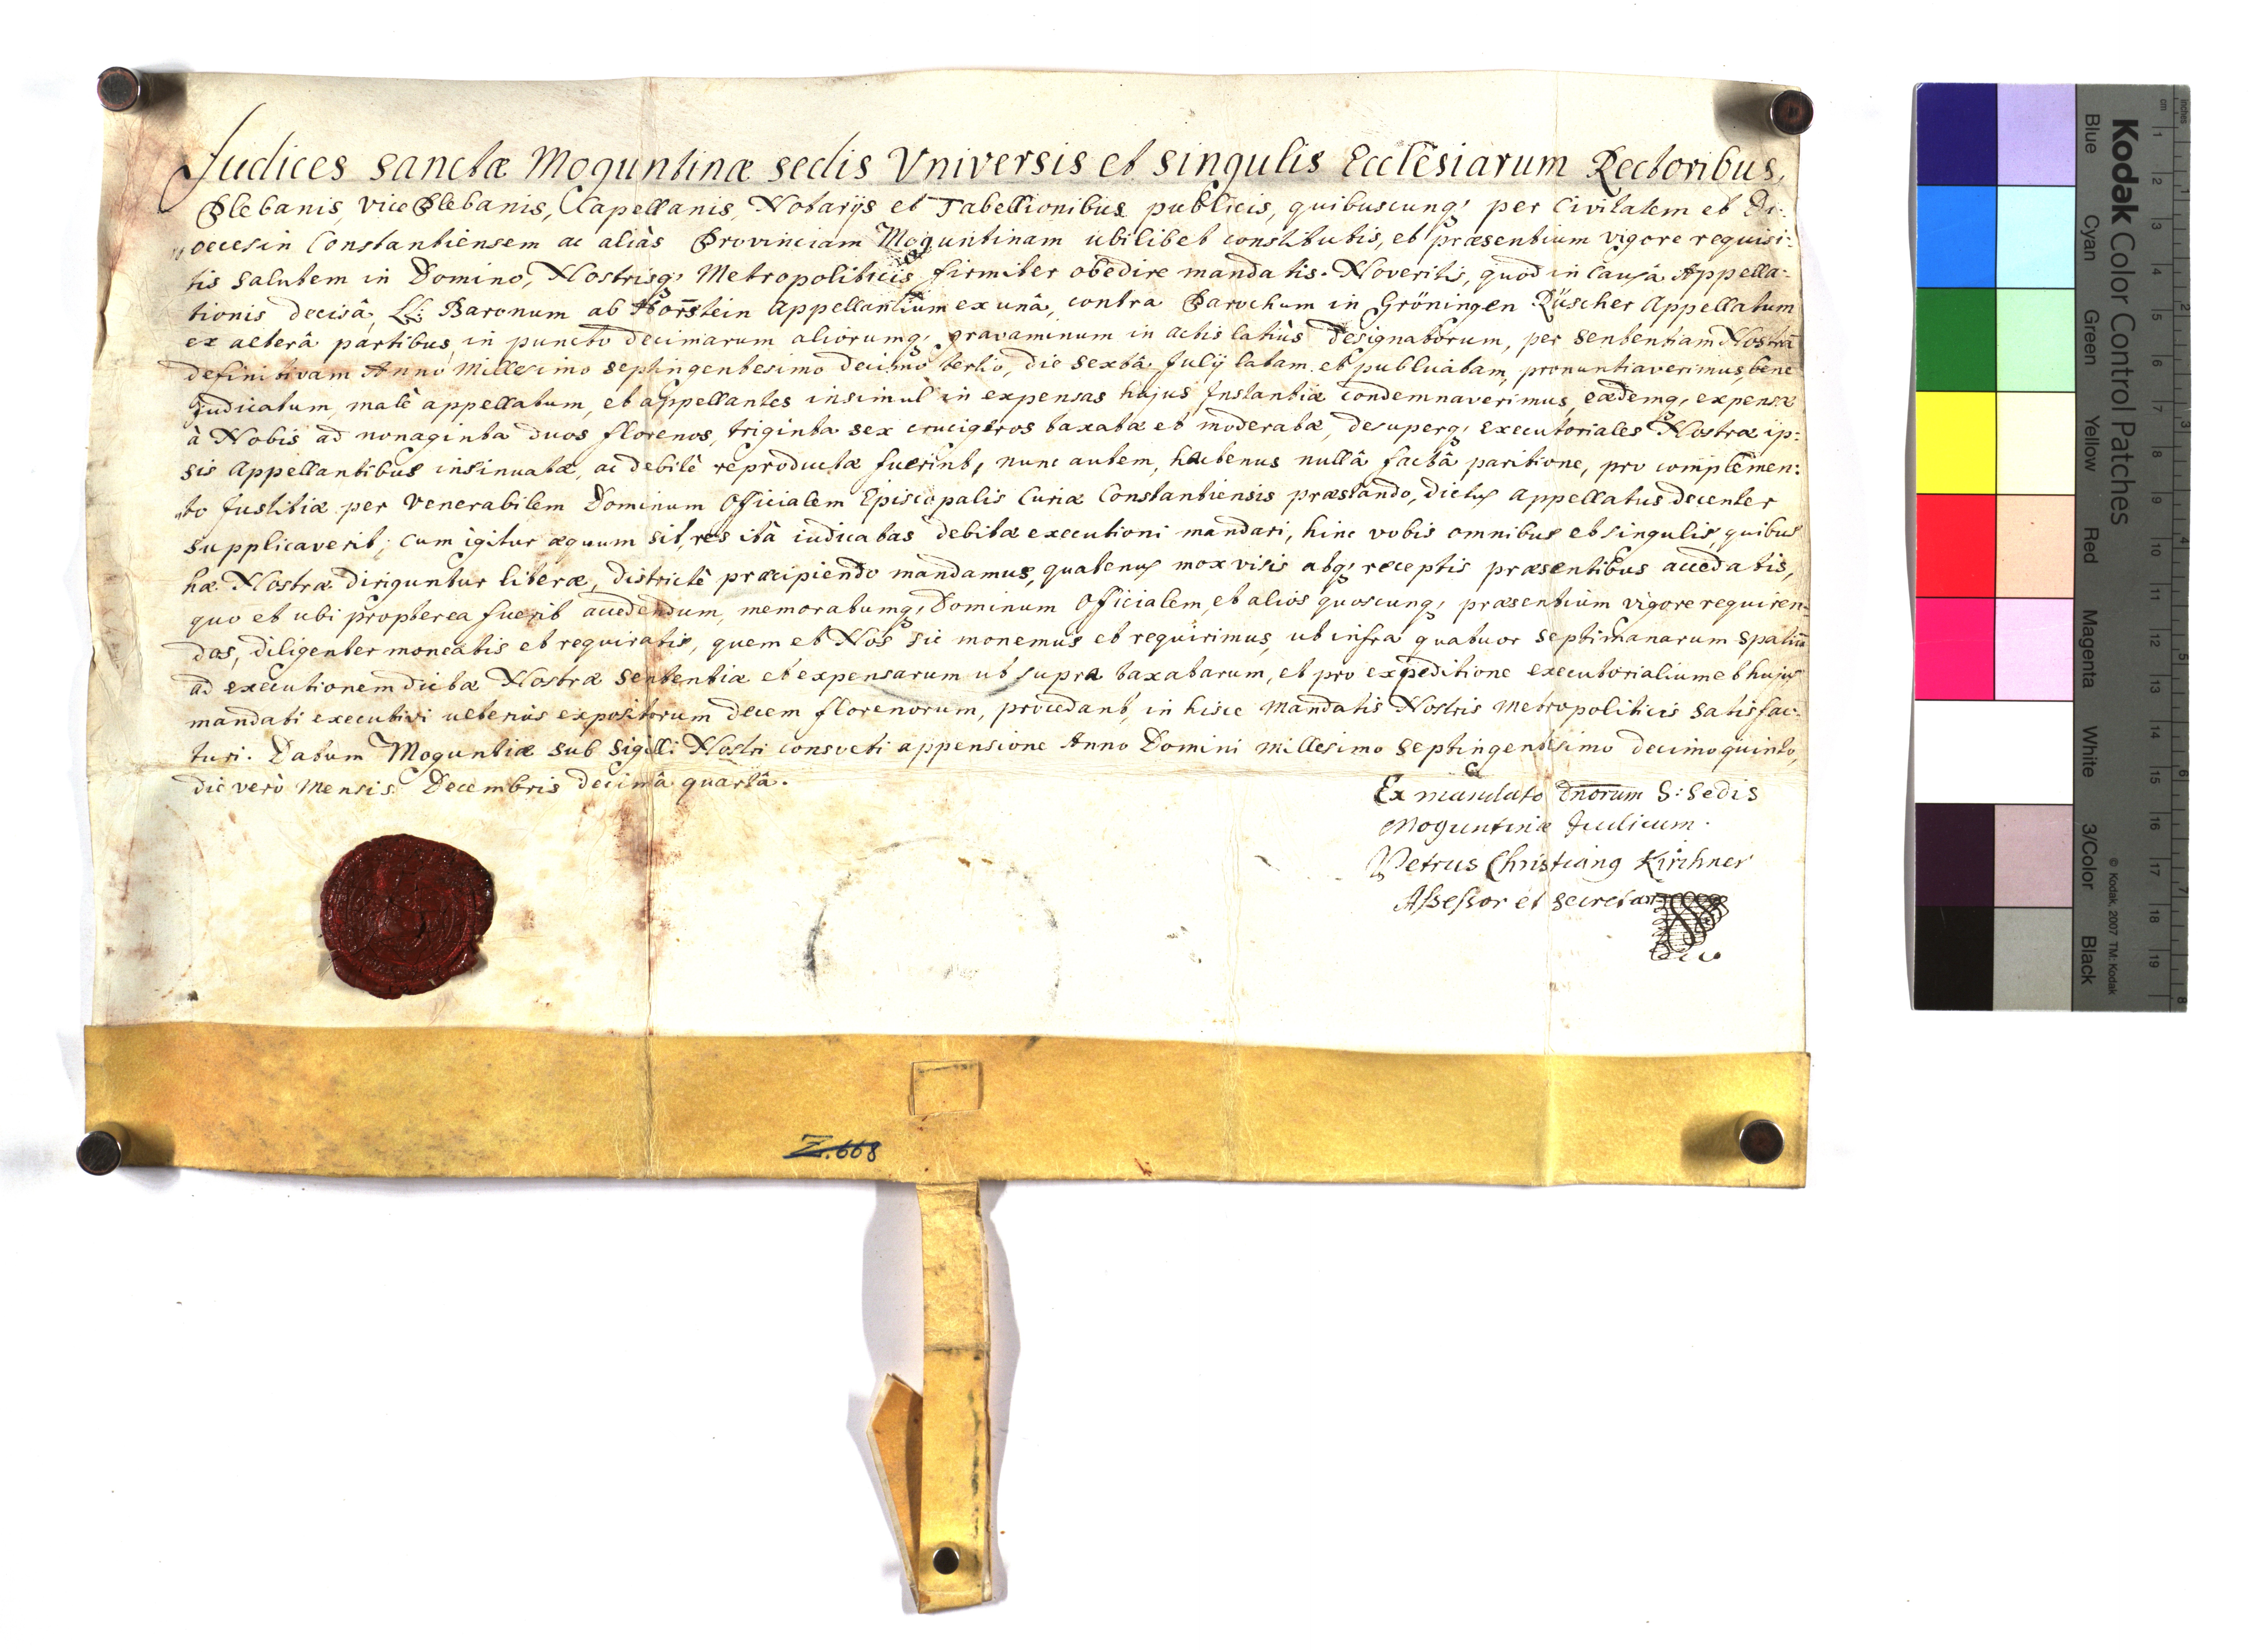 Judices sanctæ Moguntinæ sedis Universis et singulis Ecclesiarum Rectoribus,
Plebanis, vice Plebanis, Capellanis, Notarijs et Tabellionibus publicis, quibuscunq; per Civitatem et Di:
oecesin Constantiensem ac aliàs Provinciam Moguntinam ubilibet constitutis, et præsentium vigore requisi:
tis Salutem in Domino, Nostrisq; Metropoliticis firmiter obedire mandatis. Noveritis, quod in Causâ Appella:
tionis decisâ, LL: Baronum ab Hornstein Appellantium ex unâ, contra Parochum in Gröningen Rüscher Appellatum
ex alterâ partibus, in puncto decimarum aliorumq; gravaminum in actis latiùs designatorum, per sententiam Nostrā
definitivam Anno Millesimo septingentesimo decimo tertio, die sextâ Julij latam et publicatam, pronuntiaverimus, bene
judicatum, malè appellatum, et appellantes insimul in expensas hujus Instantiæ condemnaverimus, eædemq; expensæ
à Nobis ad nonaginta duos florenos, triginta sex crucigeros taxatæ et moderatæ, desuperq; executoriales Nostræ ip:
sis Appellantibus insinuatæ, ac debitè reproductæ fuerint, nunc autem, hactenus nullâ factâ paritione, pro complemen:
to Justitiæ per Venerabilem Dominum Officialem Episcopalis Curiæ Constantiensis præstando, dictus appellatus decenter
supplicaverit; cum igitur æquum sit, res ità iudicatas debitæ executioni mandari, hinc vobis omnibus et singulis, quibus
hæ Nostræ diriguntur literæ, districtè præcipiendo mandamus, quatenus mox visis atq; receptis præsentibus accedatis,
quo et ubi propterea fuerit accedendum, memoratumq; Dominum Officialem, et alios quoscunq; præsentium vigore requiren:
dos, diligenter moneatis et requiratis, quem et Nos sic monemus et requirimus, ut infra quatuor septimanarum spatiū
ad executionem dictæ Nostræ sententiæ et expensarum ut supra taxatarum, et pro expeditione executorialium et hujus
mandati executivi ulteriùs expositorum decem florenorum, procedant, in hisce mandatis Nostris Metropoliticis satisfac:
turi. Datum Moguntiæ sub Sigilli Nostri consveti appensione Anno Domini millesimo septingentesimo decimo quinto,
die verò Mensis Decembris decimâ quartâ.
Ex mandato Dnorum S: Sedis
Moguntinæ Judicum.
Petrus Christianq Kirchner
Assessor et Secretar
Z.668
Kodak Color Control Patches
Blue Cyan Green Yellow Red Magenta White 3/Color Black
© Kodak, 2007 TM: Kodak
cm 1 2 3 4 5 6 7 8 9 10 11 12 13 14 15 16 17 18 19
Inches 1 2 3 4 5 6 7 8